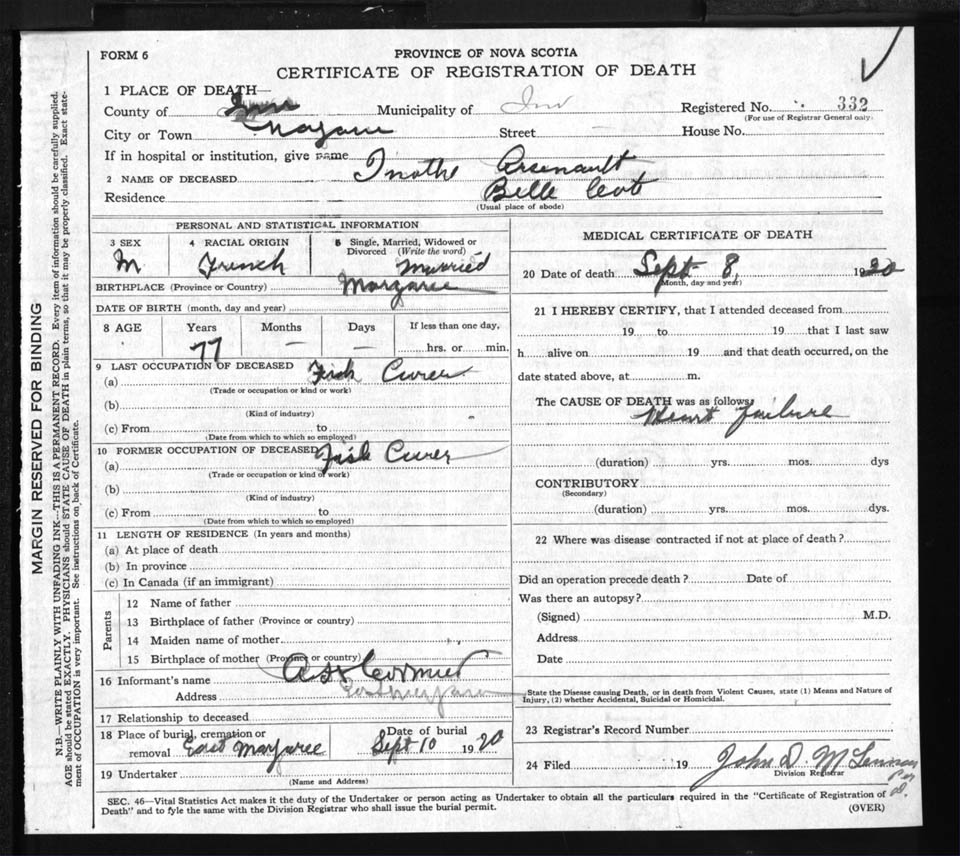 FORM 6
PROVINCE OF NOVA SCOTIA
CERTIFICATE OF REGISTRATION OF DEATH
1 PLACE OF DEATH—
County of Municipality of Inv Registered No. 332
(For use of Registrar General only)
City or Town Margaree Street — House No.
If in hospital or institution, give name
2 NAME OF DECEASED Arsenault
Residence Belle Cote
(Usual place of abode)
PERSONAL AND STATISTICAL INFORMATION
3 SEX 4 RACIAL ORIGIN 5 Single, Married, Widowed or Divorced (Write the word)
M French Married
BIRTHPLACE (Province or Country) Margaree
DATE OF BIRTH (month, day and year)
8 AGE Years Months Days If less than one day,
77 — — hrs. or min.
9 LAST OCCUPATION OF DECEASED
(a) Fish Curer
(Trade or occupation or kind or work)
(b)
(Kind of industry)
(c) From to
(Date from which to which so employed)
10 FORMER OCCUPATION OF DECEASED
(a) Fish Curer
(Trade or occupation or kind of work)
(b)
(Kind of industry)
(c) From to
(Date from which to which so employed)
11 LENGTH OF RESIDENCE (In years and months)
(a) At place of death
(b) In province
(c) In Canada (if an immigrant)
Parents
12 Name of father
13 Birthplace of father (Province or country)
14 Maiden name of mother
15 Birthplace of mother (Province or country)
16 Informant's name Cormier
Address
17 Relationship to deceased
18 Place of burial, cremation or removal East Margaree Date of burial Sept 10 1920
19 Undertaker
(Name and Address)
MEDICAL CERTIFICATE OF DEATH
20 Date of death Sept 8, 1920
(Month, day and year)
21 I HEREBY CERTIFY, that I attended deceased from
19 to 19 that I last saw
h alive on 19 and that death occurred, on the
date stated above, at m.
The CAUSE OF DEATH was as follows:
Heart Failure
(duration) yrs. mos. dys
CONTRIBUTORY
(Secondary)
(duration) yrs. mos. dys.
22 Where was disease contracted if not at place of death?
Did an operation precede death? Date of
Was there an autopsy?
(Signed) M.D.
Address
Date
State the Disease causing Death, or in death from Violent Causes, state (1) Means and Nature of
Injury, (2) whether Accidental, Suicidal or Homicidal.
23 Registrar's Record Number
24 Filed 19 John D. McLennan
Division Registrar
SEC. 46—Vital Statistics Act makes it the duty of the Undertaker or person acting as Undertaker to obtain all the particulars required in the "Certificate of Registration of
Death" and to fyle the same with the Division Registrar who shall issue the burial permit. (OVER)
MARGIN RESERVED FOR BINDING
N.B.—WRITE PLAINLY WITH UNFADING INK—THIS IS A PERMANENT RECORD. Every item of information should be carefully supplied.
AGE should be stated EXACTLY. PHYSICIANS should STATE CAUSE OF DEATH in plain terms, so that it may be properly classified. Exact state-
ment of OCCUPATION is very important. See instructions on back of Certificate.